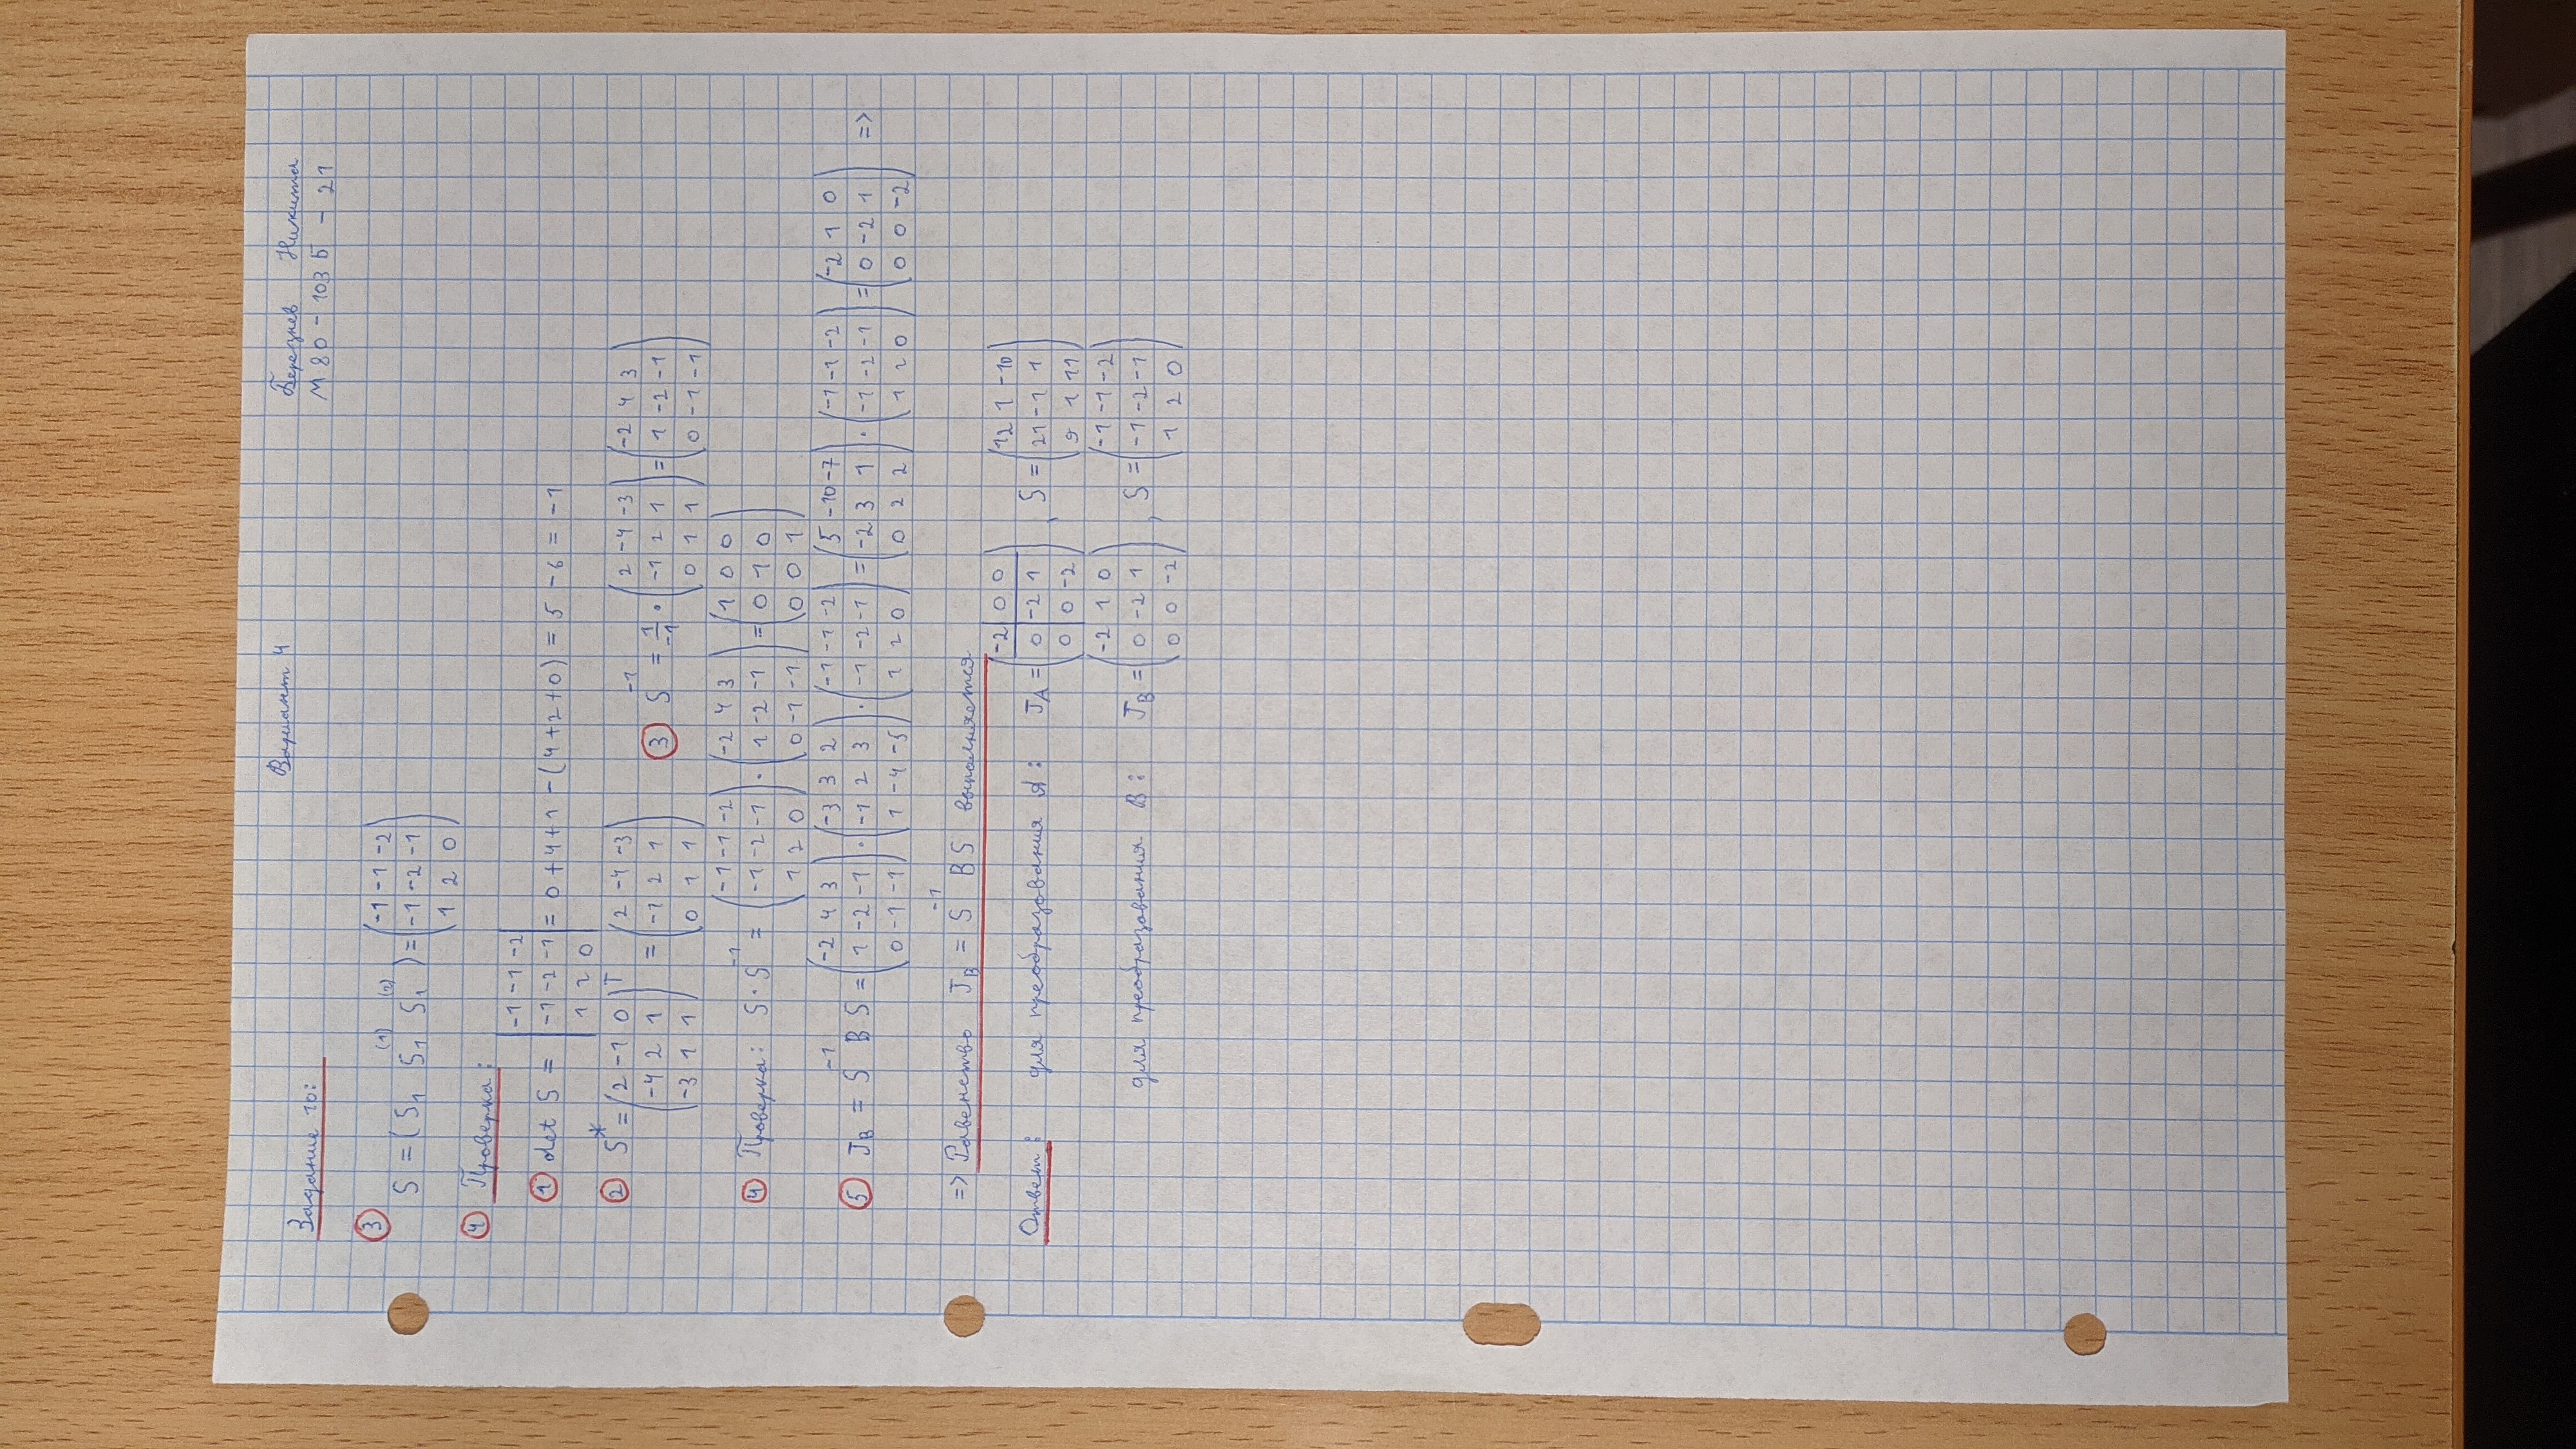 Вариант 4
Березнев Никита
Задание 10:
М 80 - 103 Б - 21
③
S = (S₁ S₁⁽¹⁾ S₁⁽²⁾) = (-1 -1 -2; -1 -2 -1; 1 2 0)
④ Проверка:
① det S = |-1 -1 -2; -1 -2 -1; 1 2 0| = 0 + 4 + 1 - (4 + 2 + 0) = 5 - 6 = -1
② S* = (2 -1 0; -4 2 1; -3 1 1)ᵀ = (2 -4 -3; -1 2 1; 0 1 1) ③ S⁻¹ = 1/-1 · (2 -4 -3; -1 2 1; 0 1 1) = (-2 4 3; 1 -2 -1; 0 -1 -1)
④ Проверка: S · S⁻¹ = (-1 -1 -2; -1 -2 -1; 1 2 0) · (-2 4 3; 1 -2 -1; 0 -1 -1) = (1 0 0; 0 1 0; 0 0 1)
⑤ J_B = S⁻¹ B S = (-2 4 3; 1 -2 -1; 0 -1 -1) · (-3 3 2; -1 2 3; 1 -4 -5) · (-1 -1 -2; -1 -2 -1; 1 2 0) = (5 -10 -7; -2 3 1; 0 2 2) · (-1 -1 -2; -1 -2 -1; 1 2 0) = (-2 1 0; 0 -2 1; 0 0 -2) =>
=> Равенство J_B = S⁻¹ B S выполняется
Ответ: для преобразования A: J_A = (-2 0 0; 0 -2 1; 0 0 -2), S = (12 1 -10; 21 -1 1; 9 1 11)
для преобразования B: J_B = (-2 1 0; 0 -2 1; 0 0 -2), S = (-1 -1 -2; -1 -2 -1; 1 2 0)